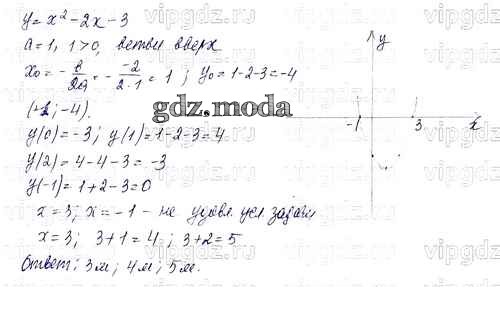 y = x² - 2x - 3
a = 1, 1 > 0, ветви вверх
x₀ = - в/2a = - -2/2·1 = 1 ; y₀ = 1-2-3 = -4
; -4).
y(0) = -3; y(1) = 1-2-3 = 4
y(2) = 4-4-3 = -3
y(-1) = 1+2-3 = 0
x = 3; x = -1 - не удовл. усл. задачи
x = 3; 3+1 = 4 ; 3+2 = 5
Ответ: 3м; 4м; 5м.
y
-1 3 x
gdz.moda
vipgdz.ru